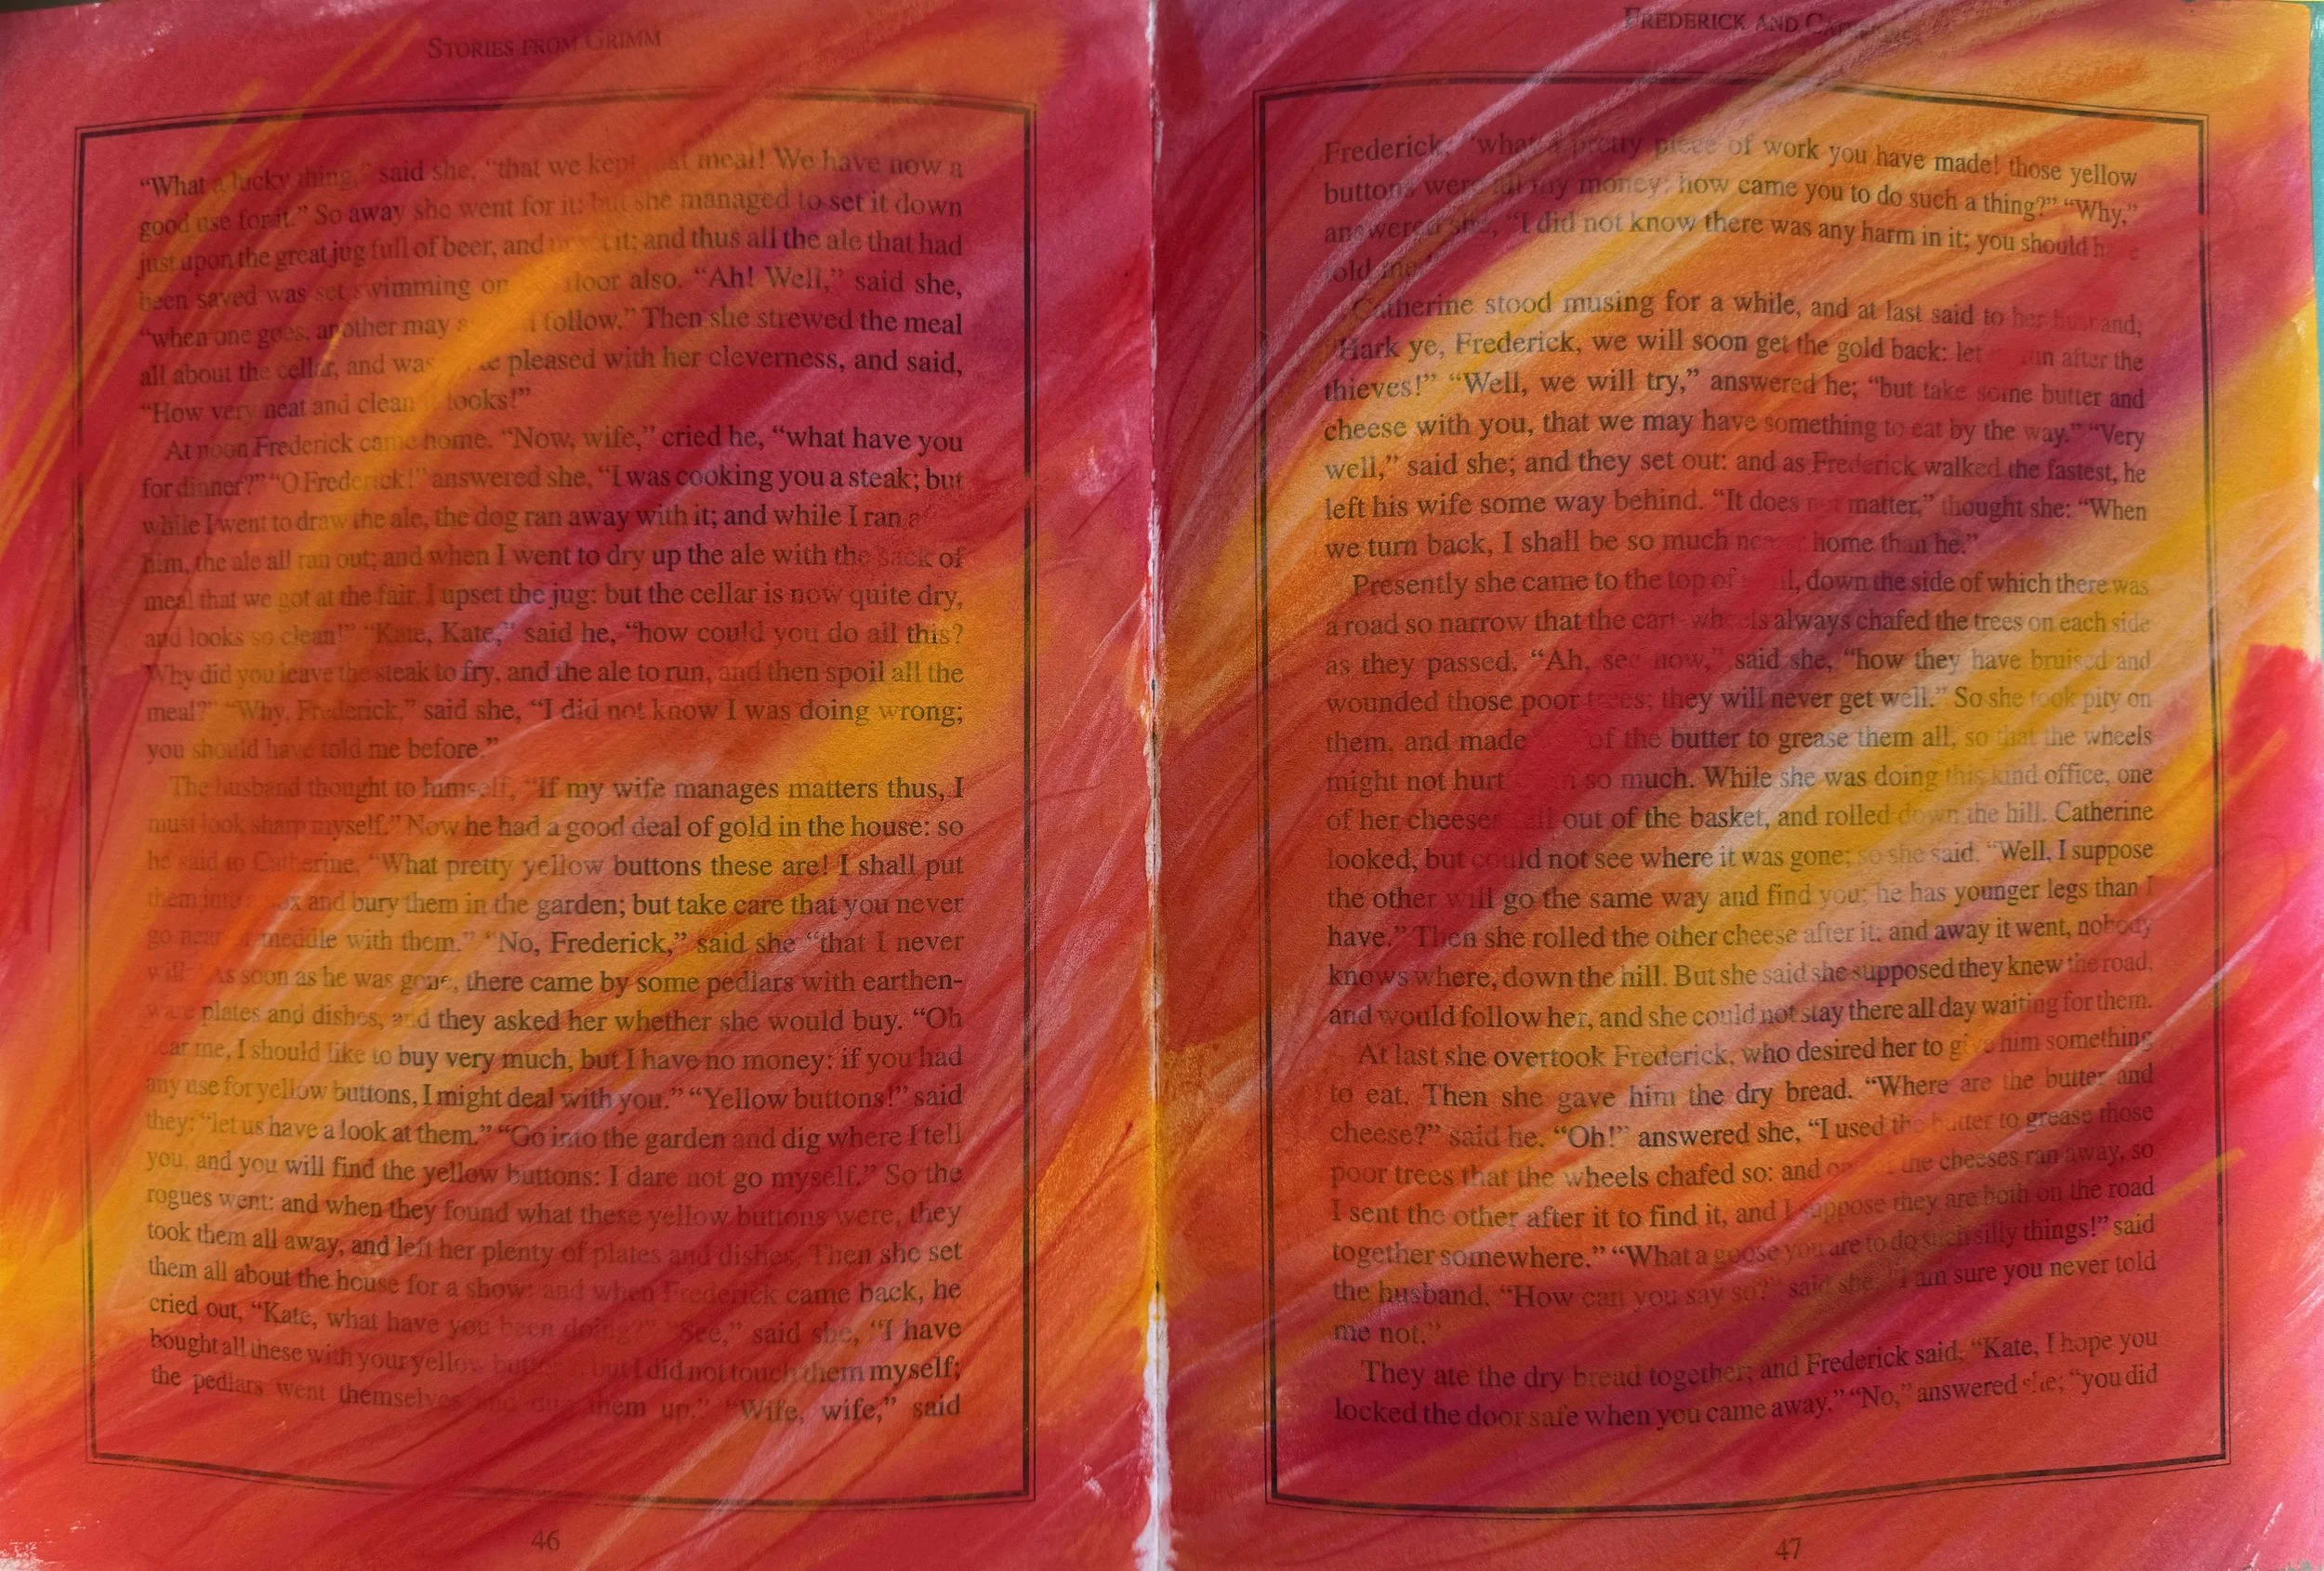 STORIES FROM GRIMM
“What a lucky thing,” said she, “that we kept that meal! We have now a
good use for it.” So away she went for it: but she managed to set it down
just upon the great jug full of beer, and upset it; and thus all the ale that had
been saved was set swimming on the floor also. “Ah! Well,” said she,
“when one goes, another may as well follow.” Then she strewed the meal
all about the cellar, and was quite pleased with her cleverness, and said,
“How very neat and clean it looks!”
At noon Frederick came home. “Now, wife,” cried he, “what have you
for dinner?” “O Frederick!” answered she, “I was cooking you a steak; but
while I went to draw the ale, the dog ran away with it; and while I ran
him, the ale all ran out; and when I went to dry up the ale with the sack of
meal that we got at the fair, I upset the jug: but the cellar is now quite dry,
and looks so clean!” “Kate, Kate,” said he, “how could you do all this?
Why did you leave the steak to fry, and the ale to run, and then spoil all the
meal?” “Why, Frederick,” said she, “I did not know I was doing wrong;
you should have told me before.”
The husband thought to himself, “If my wife manages matters thus, I
must look sharp myself.” Now he had a good deal of gold in the house: so
he said to Catherine, “What pretty yellow buttons these are! I shall put
them into a box and bury them in the garden; but take care that you never
go near or meddle with them.” “No, Frederick,” said she “that I never
will.” As soon as he was gone, there came by some pedlars with earthen-
ware plates and dishes, and they asked her whether she would buy. “Oh
dear me, I should like to buy very much, but I have no money: if you had
any use for yellow buttons, I might deal with you.” “Yellow buttons!” said
they: “let us have a look at them.” “Go into the garden and dig where I tell
you, and you will find the yellow buttons: I dare not go myself.” So the
rogues went: and when they found what these yellow buttons were, they
took them all away, and left her plenty of plates and dishes. Then she set
them all about the house for a show: and when Frederick came back, he
cried out, “Kate, what have you been doing?” “See,” said she, “I have
bought all these with your yellow buttons: but I did not touch them myself;
the pedlars went themselves and dug them up.” “Wife, wife,” said
46
FREDERICK AND
Frederick, “what a pretty piece of work you have made! those yellow
buttons were all my money; how came you to do such a thing?” “Why,”
answered she, “I did not know there was any harm in it; you should have
told me.”
Catherine stood musing for a while, and at last said to her husband,
“Hark ye, Frederick, we will soon get the gold back: let us run after the
thieves!” “Well, we will try,” answered he; “but take some butter and
cheese with you, that we may have something to eat by the way.” “Very
well,” said she; and they set out: and as Frederick walked the fastest, he
left his wife some way behind. “It does not matter,” thought she: “When
we turn back, I shall be so much nearer home than he.”
Presently she came to the top of a hill, down the side of which there was
a road so narrow that the cart-wheels always chafed the trees on each side
as they passed. “Ah, see now,” said she, “how they have bruised and
wounded those poor trees; they will never get well.” So she took pity on
them, and made of the butter to grease them all, so that the wheels
might not hurt them so much. While she was doing this kind office, one
of her cheeses fell out of the basket, and rolled down the hill. Catherine
looked, but could not see where it was gone; so she said, “Well, I suppose
the other will go the same way and find you; he has younger legs than I
have.” Then she rolled the other cheese after it; and away it went, nobody
knows where, down the hill. But she said she supposed they knew the road,
and would follow her, and she could not stay there all day waiting for them.
At last she overtook Frederick, who desired her to give him something
to eat. Then she gave him the dry bread. “Where are the butter and
cheese?” said he. “Oh!” answered she, “I used the butter to grease those
poor trees that the wheels chafed so: and one of the cheeses ran away, so
I sent the other after it to find it, and I suppose they are both on the road
together somewhere.” “What a goose you are to do such silly things!” said
the husband. “How can you say so?” said she. “I am sure you never told
me not.”
They ate the dry bread together; and Frederick said, “Kate, I hope you
locked the door safe when you came away.” “No,” answered she; “you did
47